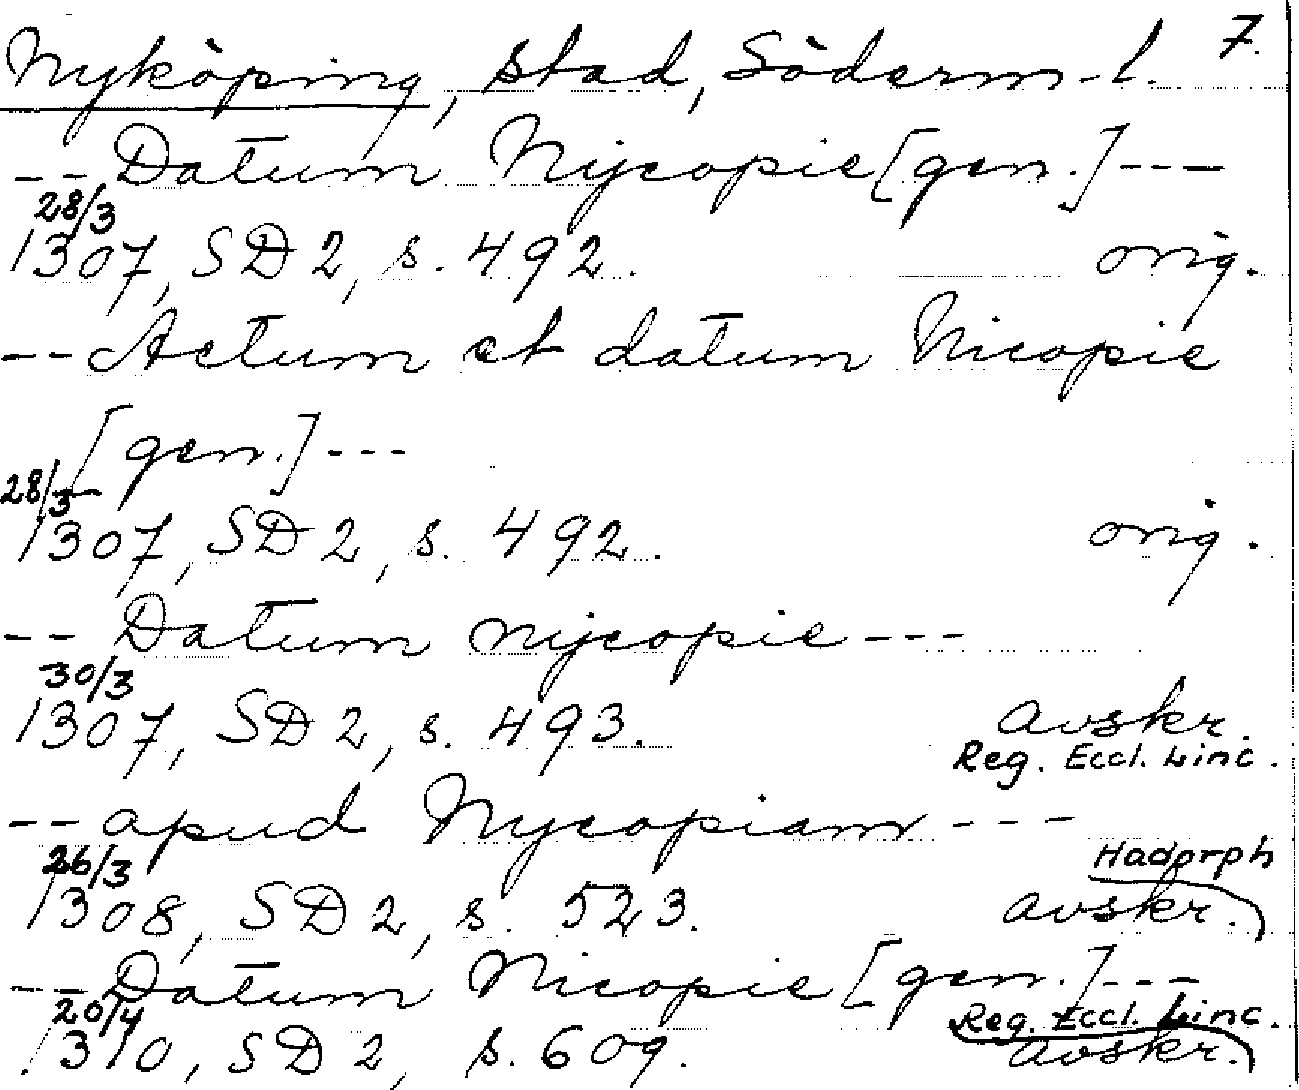 7.
Nyköping, stad, Söderm. l.
-- Datum Nycopie [gen.] ---
28/3
1307, SD 2, s. 492. orig.
-- Actum et datum Nicopie
[gen.] ---
28/3
1307, SD 2, s. 492. orig.
-- Datum nycopie ---
30/3
1307, SD 2, s. 493. avskr.
Reg. Eccl. Linc.
-- apud Nycopiam ---
26/3 Hadorph
1308, SD 2, s. 523. avskr.
-- Datum Nicopie [gen.] ---
20/4 Reg. Eccl. Linc.
1310, SD 2, s. 609. avskr.